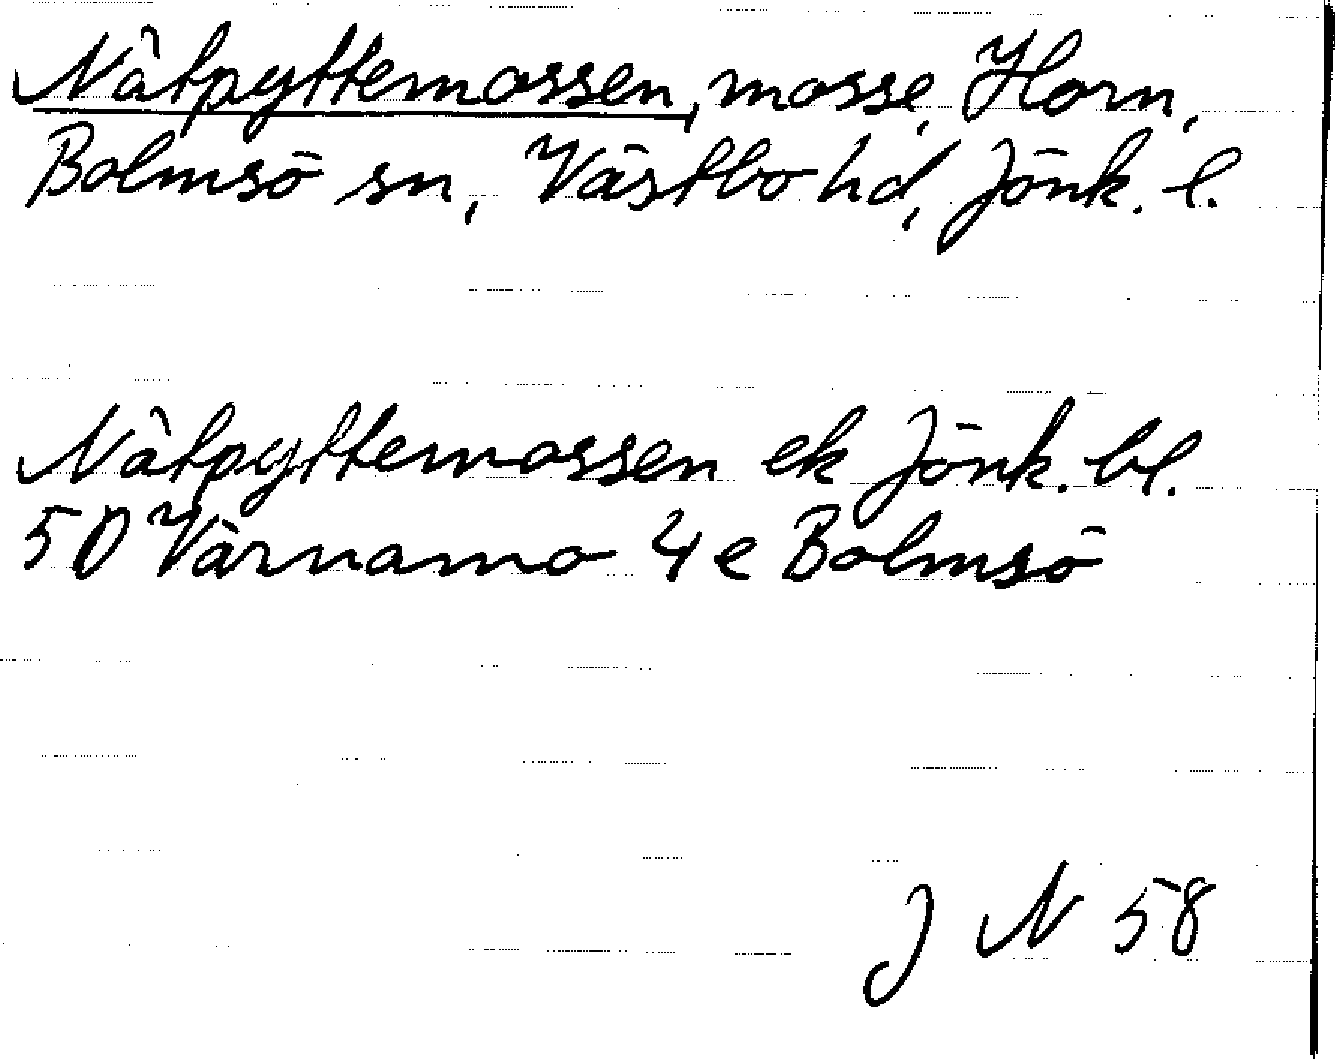 Nåtpyttemossen, mosse, Horn,
Bolmsö sn, Västbo hd, Jönk. l.
Nåtpyttemossen ek Jönk. bl.
5D Värnamo 4e Bolmsö
J N 58